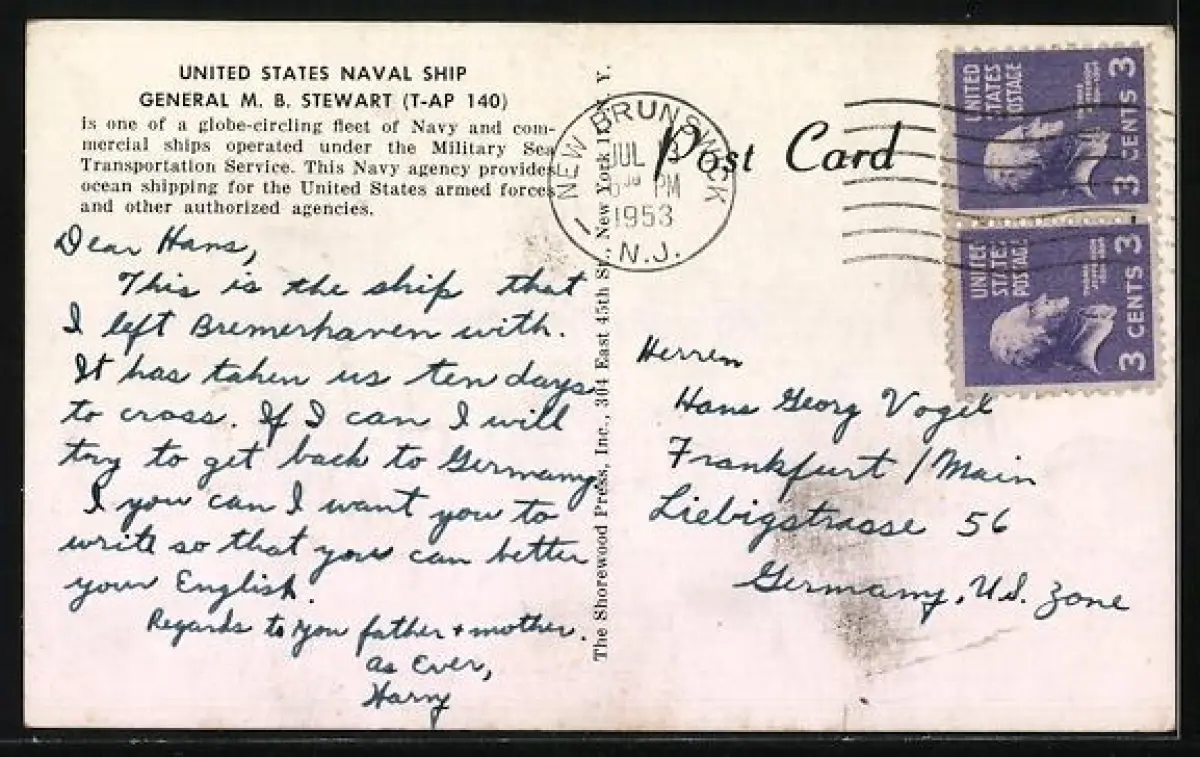 UNITED STATES NAVAL SHIP
GENERAL M. B. STEWART (T-AP 140)
is one of a globe-circling fleet of Navy and com-
mercial ships operated under the Military Sea
Transportation Service. This Navy agency provides
ocean shipping for the United States armed forces
and other authorized agencies.
Dear Hans,
This is the ship that
I left Bremerhaven with.
It has taken us ten days
to cross. If I can I will
try to get back to Germany
I you can I want you to
write so that you can better
your English.
Regards to you father + mother.
as Ever,
Harry
The Shorewood Press, Inc., 304 East 45th St., New York N. Y.
Post Card
NEW BRUNSWICK
JUL
PM
1953
N.J.
1
UNITED
STATES
POSTAGE
3 CENTS 3
UNITED
STATES
POSTAGE
THOMAS
JEFFERSON
3 CENTS 3
Herren
Hans Georg Vogel
Frankfurt / Main
Liebigstrasse 56
Germany, U.S. Zone